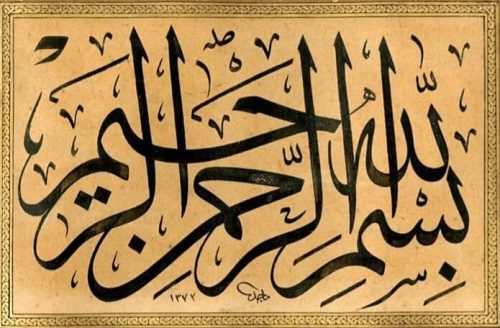 بِسْمِ اللّٰهِ الرَّحْمٰنِ الرَّحِيمِ
١٣٧٢